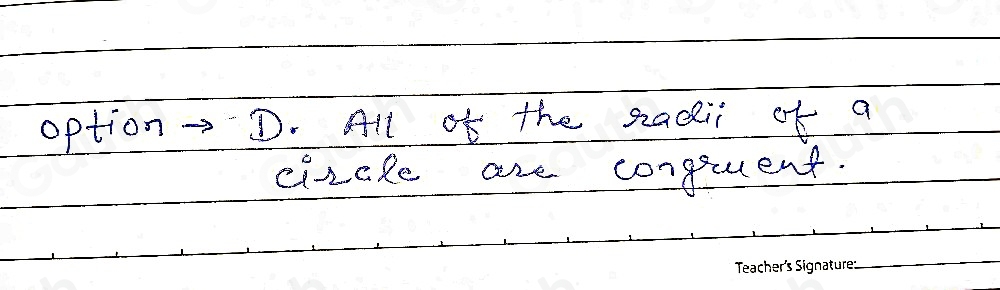 option → D. All of the radii of a
circle are congruent.
Teacher's Signature: